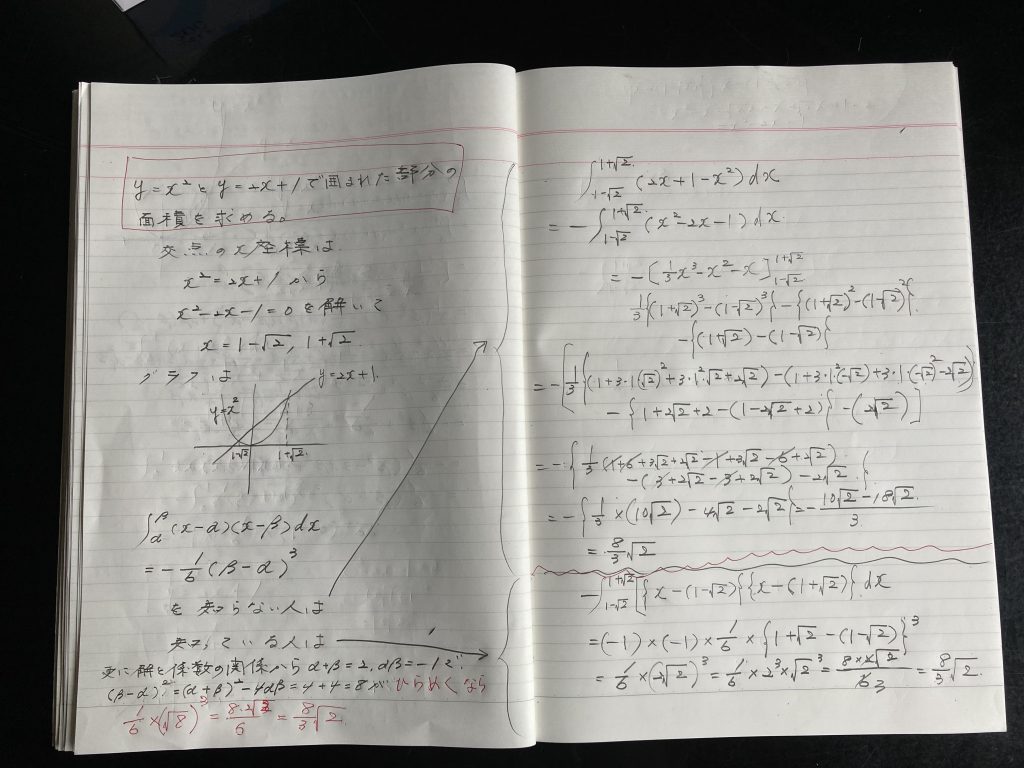 y=x²とy=2x+1で囲まれた部分の
面積を求める。
交点のx座標は
x²=2x+1から
x²-2x-1=0を解いて
x=1-√2, 1+√2
グラフは
y=2x+1
y=x²
1-√2 1+√2
∫_α^β (x-α)(x-β)dx
= -1/6 (β-α)³
を知らない人は
知っている人は
更に解と係数の関係からα+β=2, αβ=-1で
(β-α)²=(α+β)²-4αβ=4+4=8がひらめくなら
1/6×(√8)³=8·2√2/6=8/3√2
∫_{1-√2}^{1+√2} (2x+1-x²)dx
= -∫_{1-√2}^{1+√2} (x²-2x-1)dx
= -[1/3x³-x²-x]_{1-√2}^{1+√2}
1/3{(1+√2)³-(1-√2)³}-{(1+√2)²-(1-√2)²}
-{(1+√2)-(1-√2)}
= -[1/3{(1+3·1(√2)²+3·1²·√2+2√2)-(1+3·1²(-√2)+3·1(-√2)²-2√2)}
-{1+2√2+2-(1-2√2+2)}-(2√2)]
= -{1/3(1+6+3√2+2√2-1+3√2-6+2√2)
-(3+2√2-3+2√2)-2√2}
= -{1/3×(10√2)-4√2-2√2}=-(10√2-18√2)/3
= 8/3√2
-∫_{1-√2}^{1+√2} [{x-(1-√2)}{x-(1+√2)}]dx
=(-1)×(-1)×1/6×{1+√2-(1-√2)}³
=1/6×(2√2)³=1/6×2³×√2³=8×2√2/6 3=8/3√2